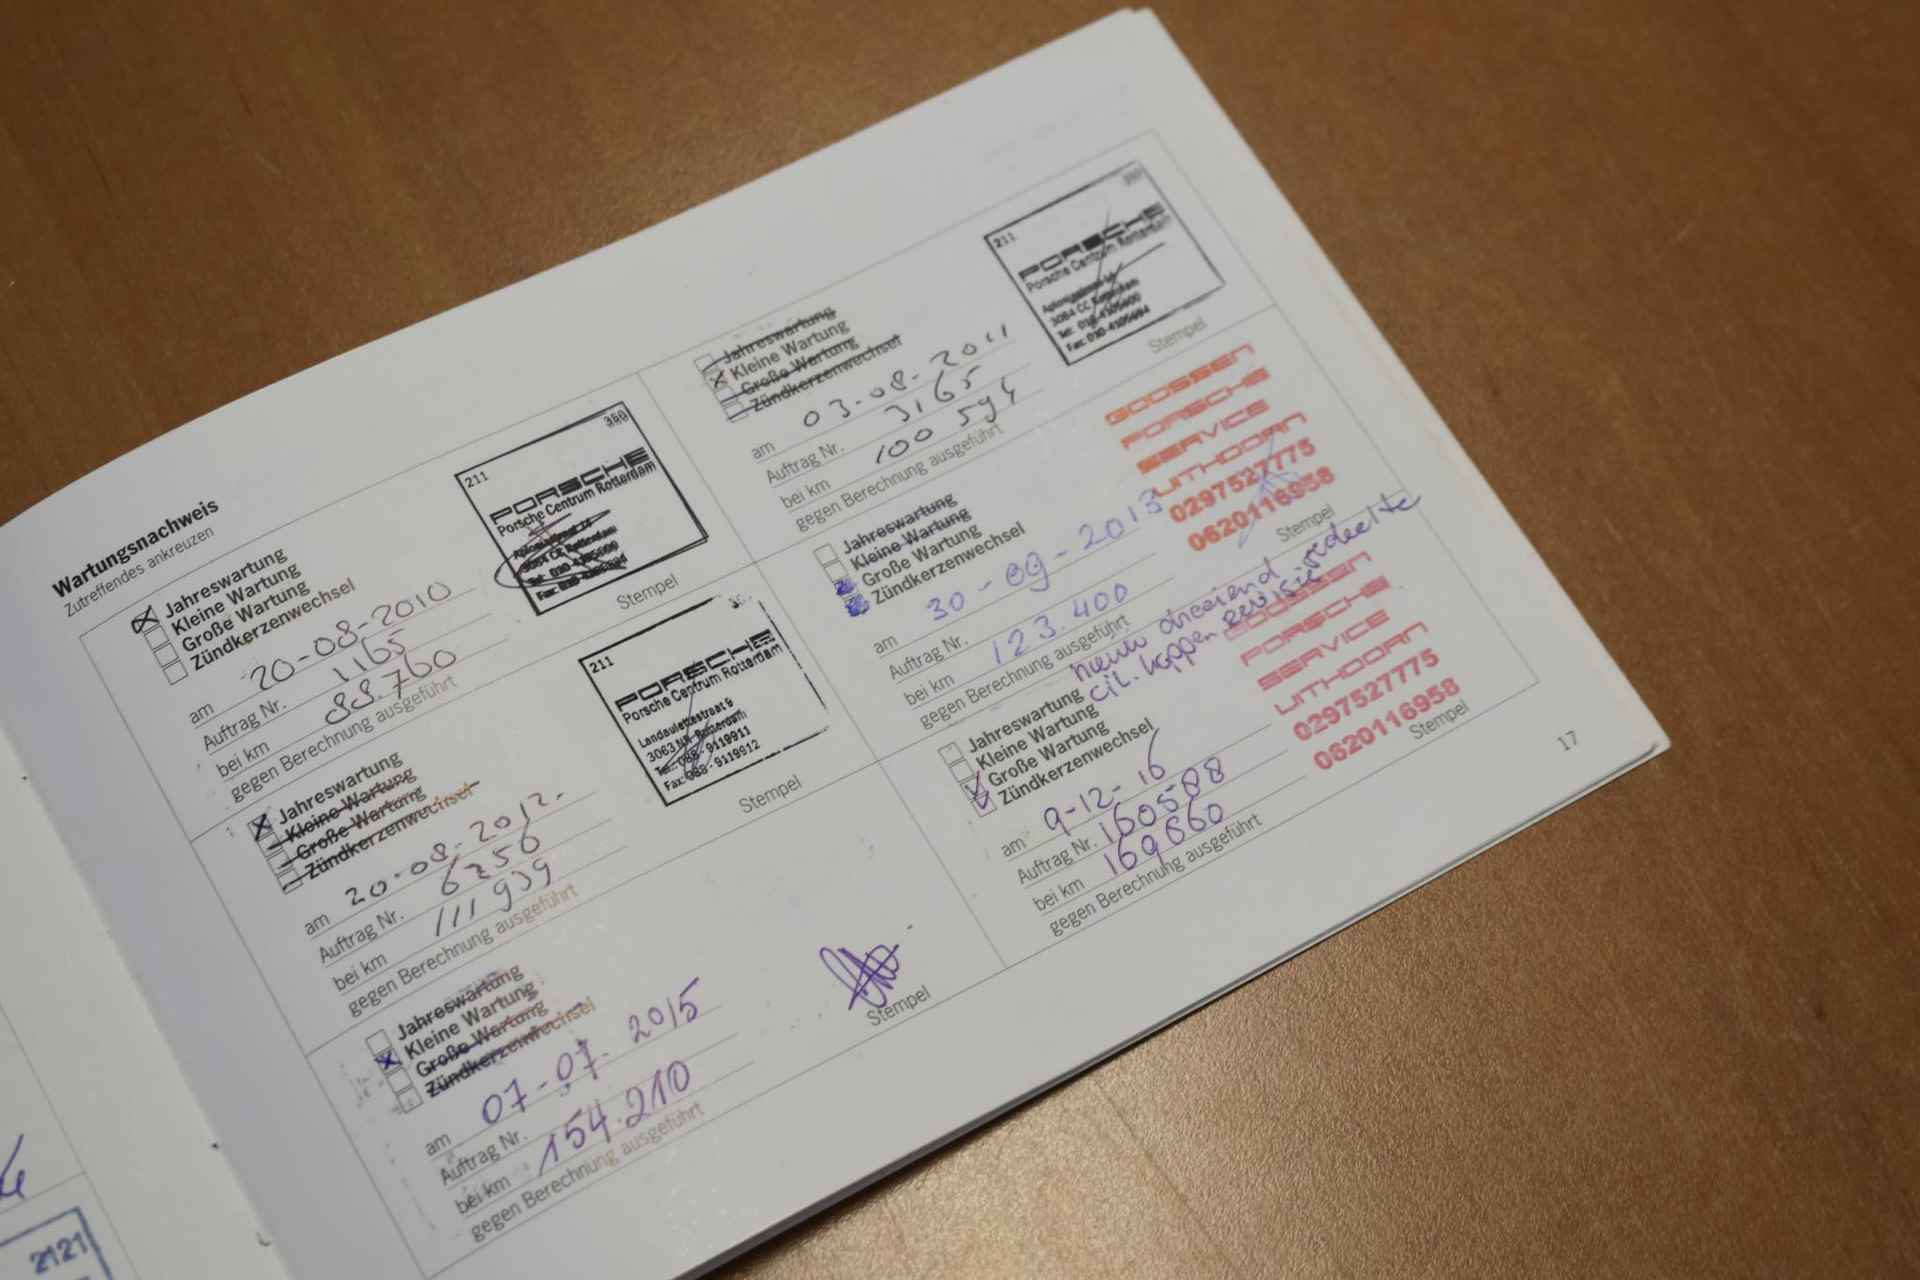 Wartungsnachweis
Zutreffendes ankreuzen
Jahreswartung
Kleine Wartung
Große Wartung
Zündkerzenwechsel
am 20-08-2010
Auftrag Nr. 1165
bei km 88.760
gegen Berechnung ausgeführt
211 380
PORSCHE
Porsche Centrum Rotterdam
3084 CC Rotterdam
Stempel
Jahreswartung
Kleine Wartung
Große Wartung
Zündkerzenwechsel
am 20-08-2012.
Auftrag Nr. 6256
bei km 111 939
gegen Berechnung ausgeführt
211
PORSCHE
Porsche Centrum Rotterdam
Landauletstraat 9
3063 NA Rotterdam
Tel.: 088 - 9119911
Fax: 088 - 9119912
Stempel
Jahreswartung
Kleine Wartung
Große Wartung
Zündkerzenwechsel
am 07-07-2015
Auftrag Nr.
bei km 154.210
gegen Berechnung ausgeführt
Stempel
Jahreswartung
Kleine Wartung
Große Wartung
Zündkerzenwechsel
am 03-08-2011
Auftrag Nr. 3165
bei km 100 594
gegen Berechnung ausgeführt
211 380
PORSCHE
Porsche Centrum Rotterdam
3084 CC Rotterdam
Stempel
Jahreswartung
Kleine Wartung
Große Wartung
Zündkerzenwechsel
am 30-09-2013
Auftrag Nr.
bei km 123.400
gegen Berechnung ausgeführt
GOOSSEN
PORSCHE
SERVICE
UITHOORN
0297527775
0620116958
Stempel
cil. koppen revisie
Jahreswartung
Kleine Wartung
Große Wartung
Zündkerzenwechsel
am 9-12-16
Auftrag Nr. 160588
bei km 169660
gegen Berechnung ausgeführt
GOOSSEN
PORSCHE
SERVICE
UITHOORN
0297527775
0620116958
Stempel
17
2121